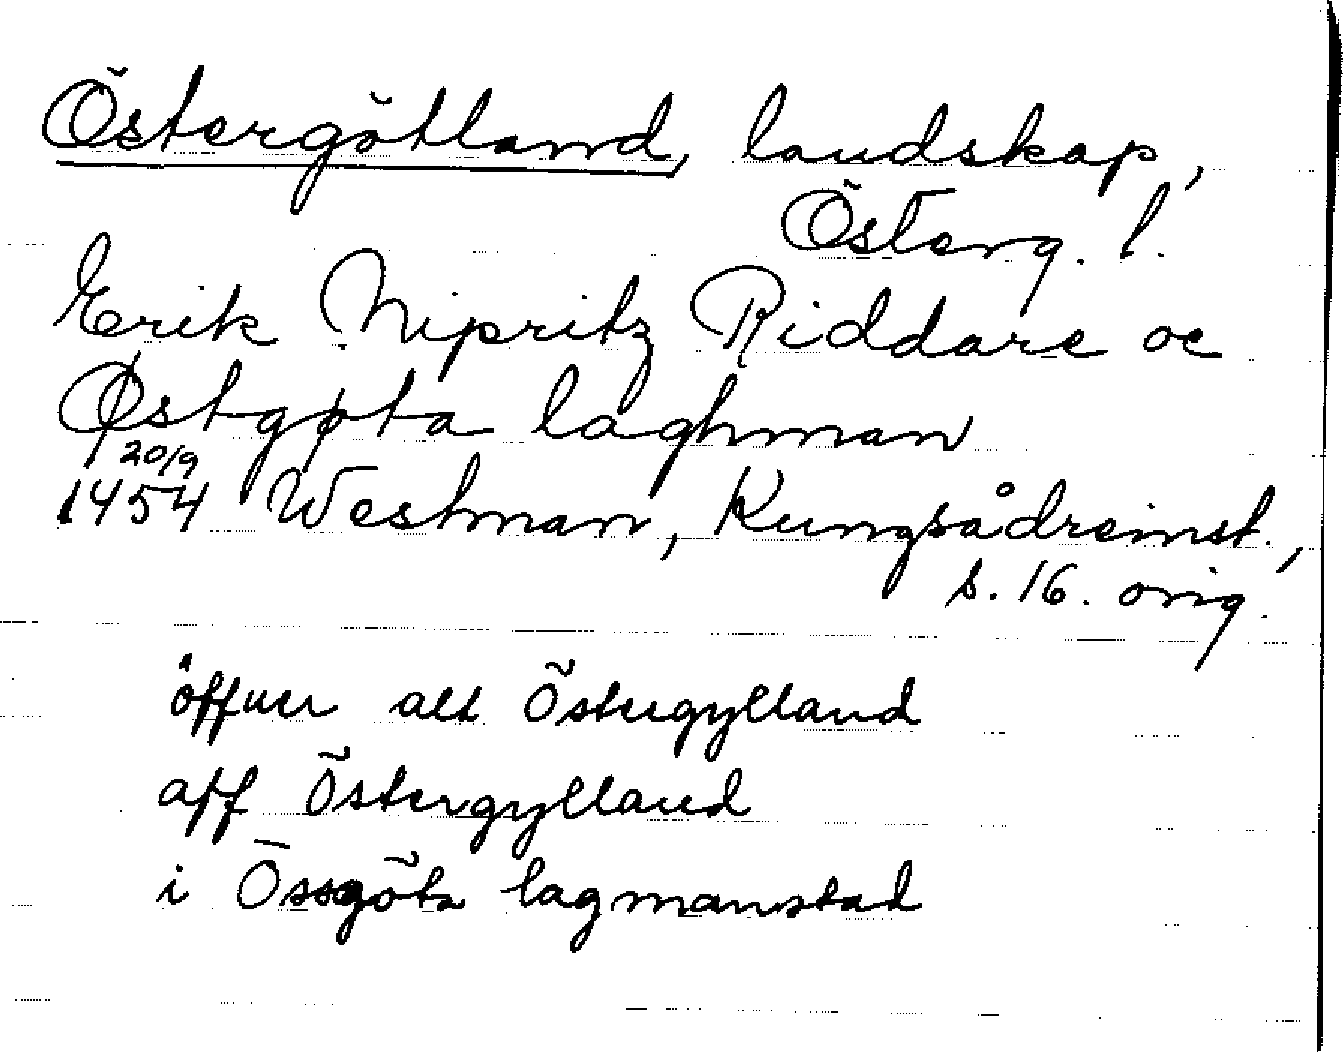 Östergötland, landskap,
Österg. l.
Erik Nipritz Riddare oc
Østgøta laghman
20/9
1454 Westman, Kungsådreinst.,
s. 16. orig.
öffuer alt Östergylland
aff Östergylland
i Össgöta lagmanstad